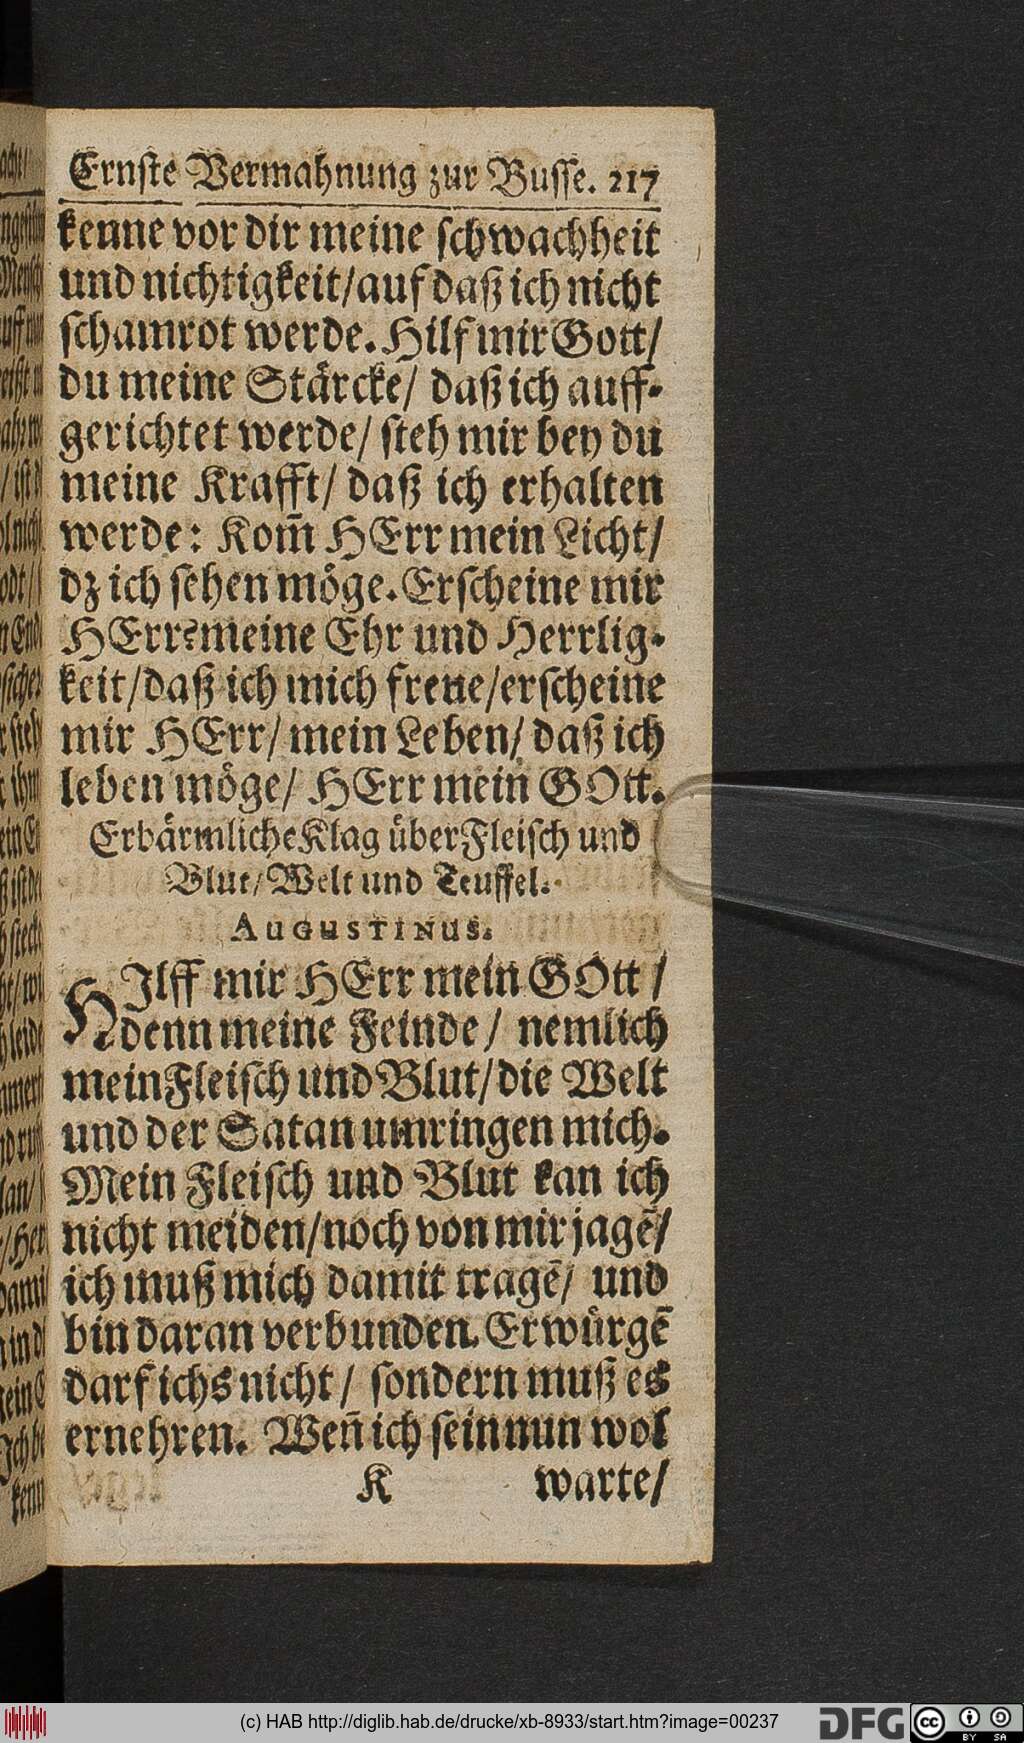 Ernste Vermahnung zur Busse. 217
kenne vor dir meine schwachheit
und nichtigkeit/ auf daß ich nicht
schamrot werde. Hilf mir Gott/
du meine Stärcke/ daß ich auff-
gerichtet werde/ steh mir bey du
meine Krafft/ daß ich erhalten
werde: Kom̃ HErr mein Licht/
dz ich sehen möge. Erscheine mir
HErr? meine Ehr und Herrlig-
keit/ daß ich mich freue/ erscheine
mir HErr/ mein Leben/ daß ich
leben möge/ HErr mein GOtt.
Erbärmliche Klag über Fleisch und
Blut/ Welt und Teuffel.
AUGUSTINUS.
HIlff mir HErr mein GOtt/
denn meine Feinde/ nemlich
mein Fleisch und Blut/ die Welt
und der Satan umringen mich.
Mein Fleisch und Blut kan ich
nicht meiden/ noch von mir jagẽ/
ich muß mich damit tragẽ/ und
bin daran verbunden. Erwürgẽ
darf ichs nicht/ sondern muß es
ernehren. Weñ ich sein nun wol
K warte/
(c) HAB http://diglib.hab.de/drucke/xb-8933/start.htm?image=00237
DFG cc BY SA